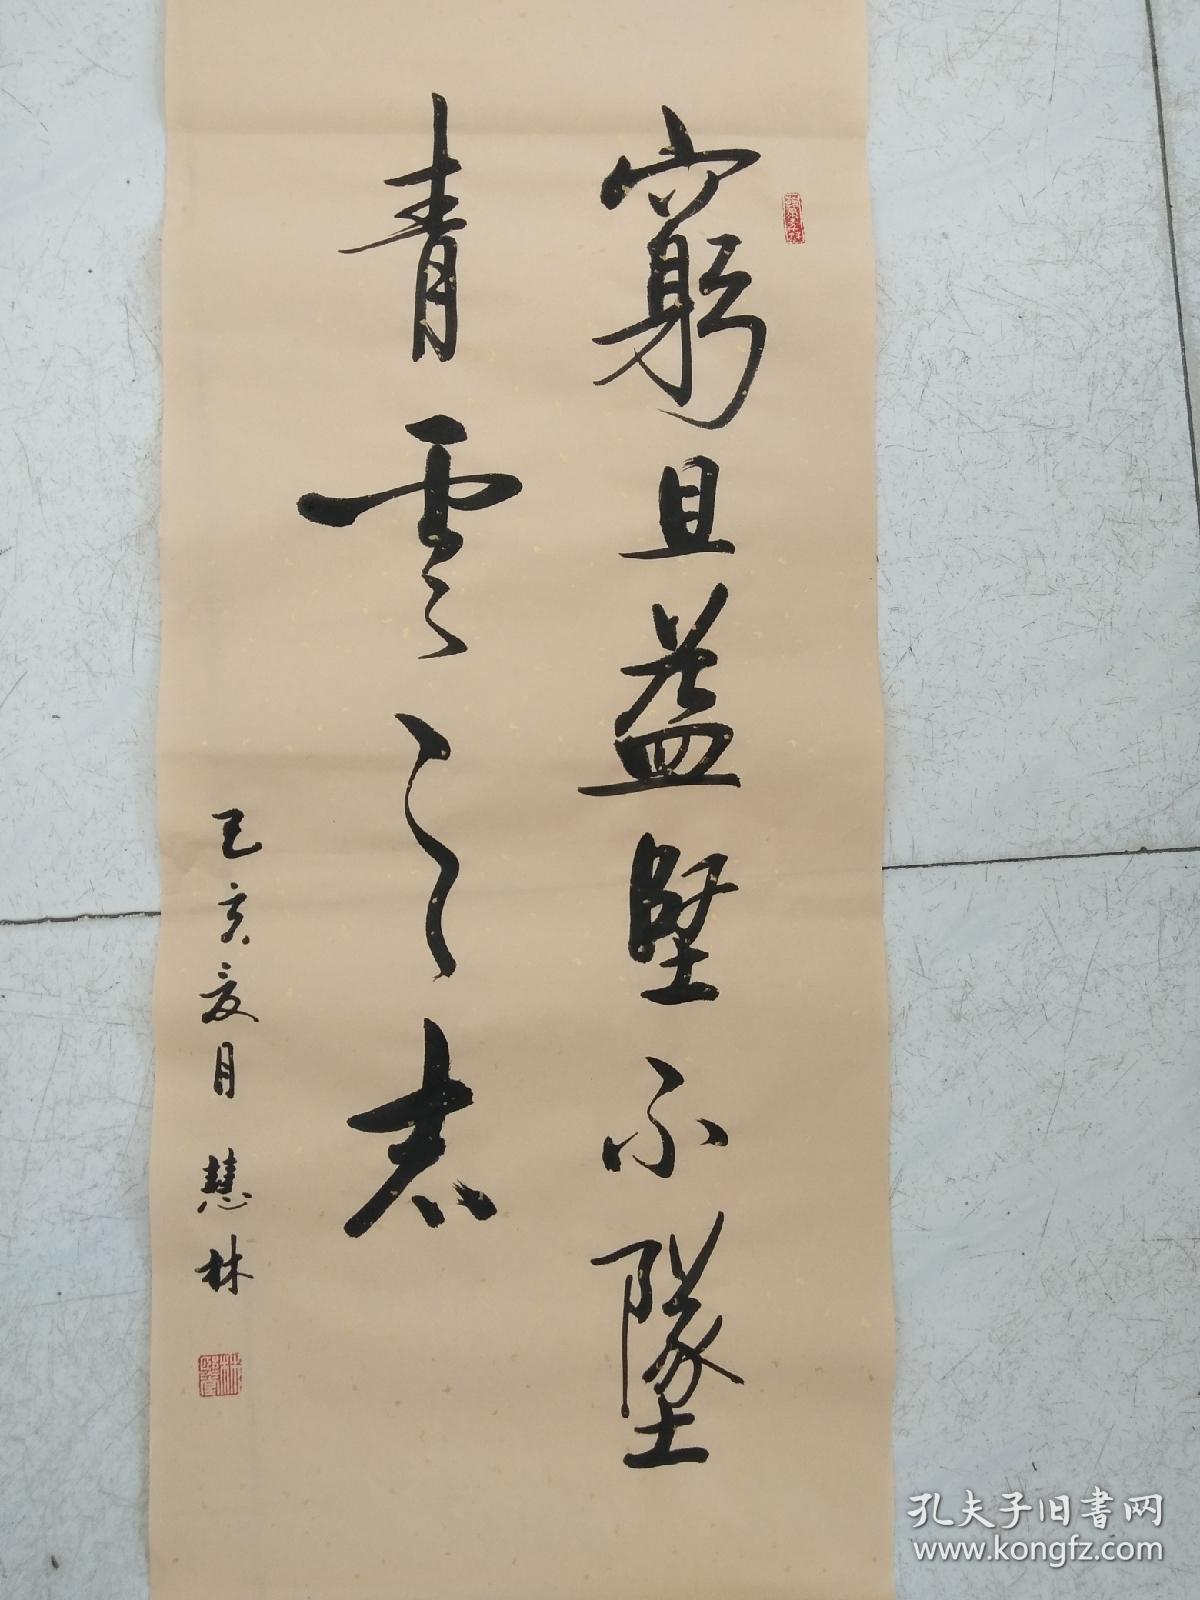 窮且益堅不墜
青雲之志
己亥夏月 慧林
孔夫子旧书网
www.kongfz.com